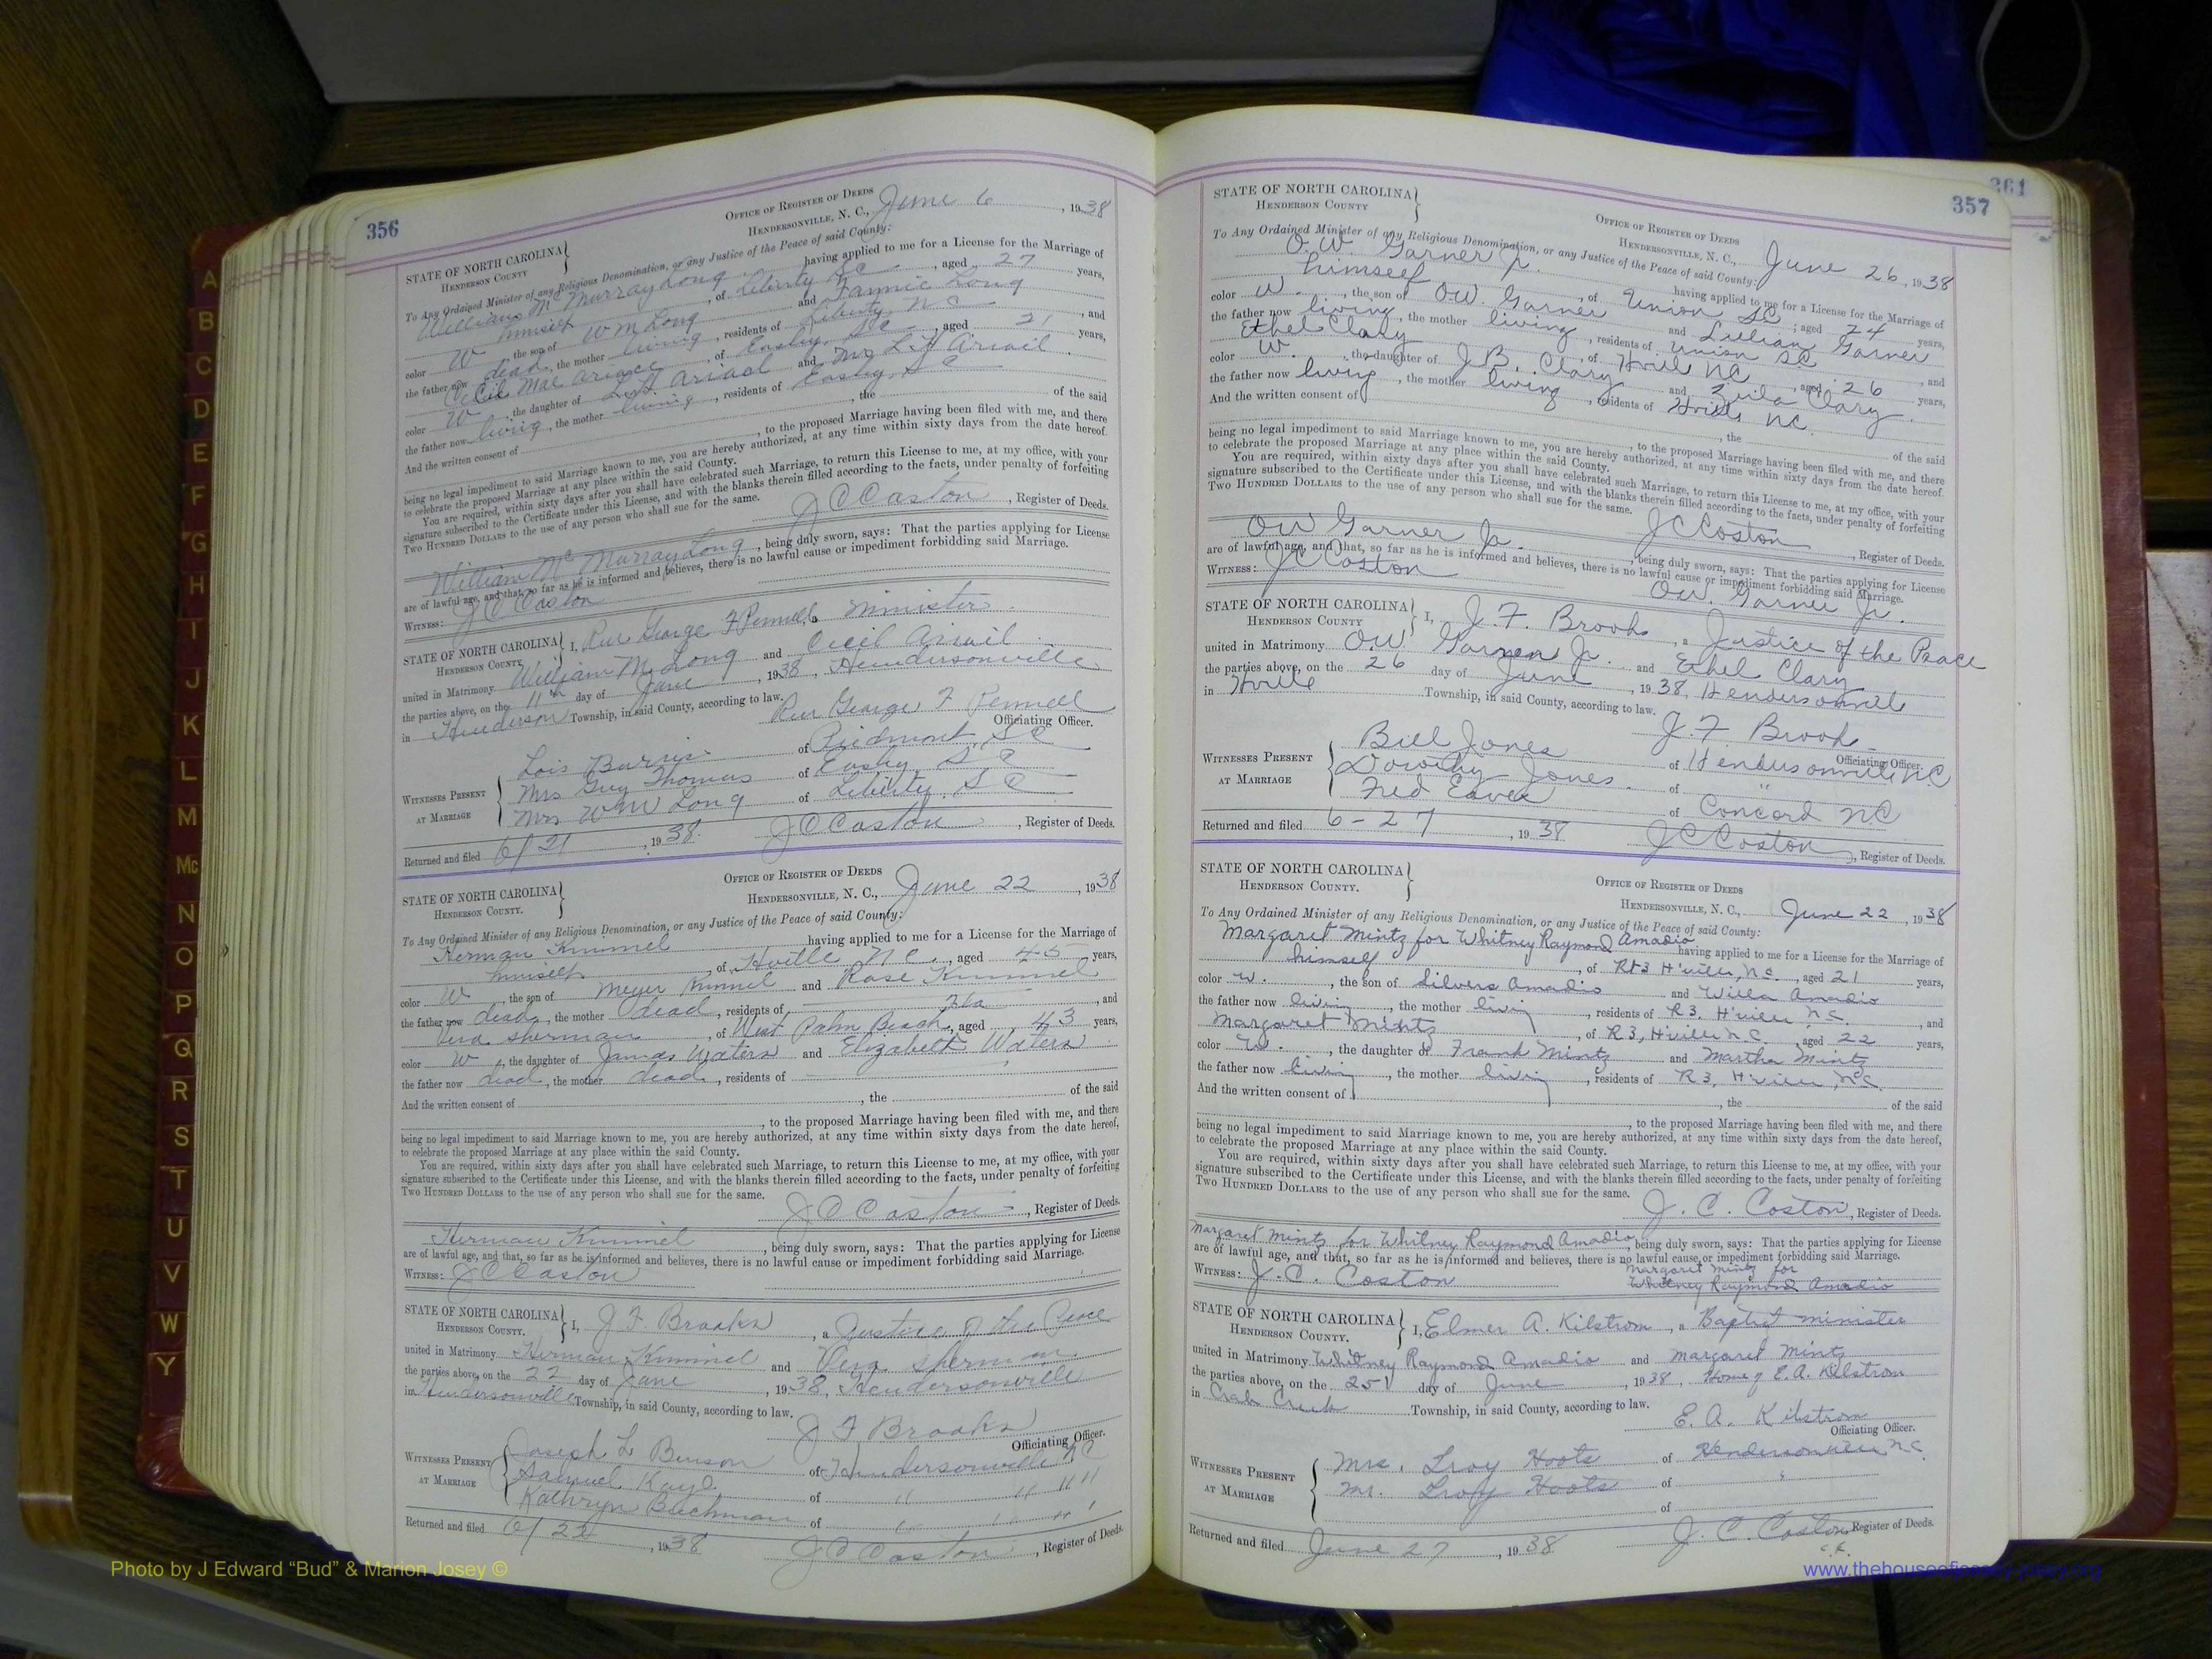 356
STATE OF NORTH CAROLINA
HENDERSON COUNTY
OFFICE OF REGISTER OF DEEDS
HENDERSONVILLE, N. C., June 6, 1938
To Any Ordained Minister of any Religious Denomination, or any Justice of the Peace of said County:
William Mc Murray Long having applied to me for a License for the Marriage of
himself, of Liberty SC, aged 27 years,
color W, the son of W M Long and Fannie Long
the father now dead, the mother living, residents of Liberty, NC, and
Cecil Mae, of Easley, SC, aged 21 years,
color W, the daughter of and Mrs
the father now living, the mother living, residents of Easley, SC
And the written consent of , the of the said
, to the proposed Marriage having been filed with me, and there
being no legal impediment to said Marriage known to me, you are hereby authorized, at any time within sixty days from the date hereof,
to celebrate the proposed Marriage at any place within the said County.
You are required, within sixty days after you shall have celebrated such Marriage, to return this License to me, at my office, with your
signature subscribed to the Certificate under this License, and with the blanks therein filled according to the facts, under penalty of forfeiting
TWO HUNDRED DOLLARS to the use of any person who shall sue for the same.
J C Coston, Register of Deeds.
William Mc Murray Long, being duly sworn, says: That the parties applying for License
are of lawful age, and that, so far as he is informed and believes, there is no lawful cause or impediment forbidding said Marriage.
WITNESS: J C Coston
STATE OF NORTH CAROLINA
HENDERSON COUNTY
I, Rev George F Pennell, a minister
united in Matrimony William M Long and Cecil
the parties above, on the 11th day of June, 1938, Hendersonville
in Henderson Township, in said County, according to law.
Rev George F Pennell
Officiating Officer.
WITNESSES PRESENT AT MARRIAGE
Lois Burris of Piedmont, SC
Mrs Guy Thomas of Easley S C
Mrs W M Long of Liberty, S C
Returned and filed 6/21, 1938. J C Coston, Register of Deeds.
STATE OF NORTH CAROLINA
HENDERSON COUNTY.
OFFICE OF REGISTER OF DEEDS
HENDERSONVILLE, N. C., June 22, 1938
To Any Ordained Minister of any Religious Denomination, or any Justice of the Peace of said County:
Herman Kimmel having applied to me for a License for the Marriage of
himself, of Hville NC, aged 45 years,
color W, the son of Meyer Kimmel and Rose Kimmel
the father now dead, the mother dead, residents of , and
Vera Sherman, of West Palm Beach, Fla, aged 43 years,
color W, the daughter of James Waters and Elizabeth Waters
the father now dead, the mother dead, residents of
And the written consent of , the of the said
, to the proposed Marriage having been filed with me, and there
being no legal impediment to said Marriage known to me, you are hereby authorized, at any time within sixty days from the date hereof,
to celebrate the proposed Marriage at any place within the said County.
You are required, within sixty days after you shall have celebrated such Marriage, to return this License to me, at my office, with your
signature subscribed to the Certificate under this License, and with the blanks therein filled according to the facts, under penalty of forfeiting
TWO HUNDRED DOLLARS to the use of any person who shall sue for the same.
J C Coston, Register of Deeds.
Herman Kimmel, being duly sworn, says: That the parties applying for License
are of lawful age, and that, so far as he is informed and believes, there is no lawful cause or impediment forbidding said Marriage.
WITNESS: J C Coston
STATE OF NORTH CAROLINA
HENDERSON COUNTY.
I, J F Brooks, a Justice of the Peace
united in Matrimony Herman Kimmel and Vera Sherman
the parties above, on the 22 day of June, 1938, Hendersonville
in Hendersonville Township, in said County, according to law.
J F Brooks
Officiating Officer.
WITNESSES PRESENT AT MARRIAGE
Joseph L Benson of Hendersonville NC
Samuel Kaye of " " "
Kathryn Buchman of " " "
Returned and filed 6/22, 1938 J C Coston, Register of Deeds.
361
357
STATE OF NORTH CAROLINA
HENDERSON COUNTY
OFFICE OF REGISTER OF DEEDS
HENDERSONVILLE, N. C., June 26, 1938
To Any Ordained Minister of any Religious Denomination, or any Justice of the Peace of said County:
O. W. Garner Jr. having applied to me for a License for the Marriage of
himself, of Union SC, aged 24 years,
color W., the son of O.W. Garner and Lillian Garner
the father now living, the mother living, residents of Union SC, and
Ethel Clary, of Hville NC, aged 26 years,
color W., the daughter of J. B. Clary and Zula Clary
the father now living, the mother living, residents of Hville NC.
And the written consent of , the of the said
, to the proposed Marriage having been filed with me, and there
being no legal impediment to said Marriage known to me, you are hereby authorized, at any time within sixty days from the date hereof,
to celebrate the proposed Marriage at any place within the said County.
You are required, within sixty days after you shall have celebrated such Marriage, to return this License to me, at my office, with your
signature subscribed to the Certificate under this License, and with the blanks therein filled according to the facts, under penalty of forfeiting
TWO HUNDRED DOLLARS to the use of any person who shall sue for the same.
J C Coston, Register of Deeds.
O W Garner Jr., being duly sworn, says: That the parties applying for License
are of lawful age, and that, so far as he is informed and believes, there is no lawful cause or impediment forbidding said Marriage.
WITNESS: J C Coston
O.W. Garner Jr.
STATE OF NORTH CAROLINA
HENDERSON COUNTY
I, J. F. Brooks, a Justice of the Peace
united in Matrimony O.W. Garner Jr. and Ethel Clary
the parties above, on the 26 day of June, 1938, Hendersonville
in Hville Township, in said County, according to law.
J. F. Brooks
Officiating Officer.
WITNESSES PRESENT AT MARRIAGE
Bill Jones of Hendersonville NC
Dorothy Jones of "
Fred Eavee of Concord NC
Returned and filed 6-27, 1938 J C Coston, Register of Deeds.
STATE OF NORTH CAROLINA
HENDERSON COUNTY.
OFFICE OF REGISTER OF DEEDS
HENDERSONVILLE, N. C., June 22, 1938
To Any Ordained Minister of any Religious Denomination, or any Justice of the Peace of said County:
Margaret Mintz for Whitney Raymond Amadio having applied to me for a License for the Marriage of
himself, of Rt3 H'ville, N.C., aged 21 years,
color W., the son of Silvers Amadio and Willa Amadio
the father now living, the mother living, residents of R3, H'ville, NC, and
Margaret Mintz, of R3, H'ville N.C., aged 22 years,
color W., the daughter of Frank Mintz and Martha Mintz
the father now living, the mother living, residents of R3, H'ville, NC
And the written consent of , the of the said
, to the proposed Marriage having been filed with me, and there
being no legal impediment to said Marriage known to me, you are hereby authorized, at any time within sixty days from the date hereof,
to celebrate the proposed Marriage at any place within the said County.
You are required, within sixty days after you shall have celebrated such Marriage, to return this License to me, at my office, with your
signature subscribed to the Certificate under this License, and with the blanks therein filled according to the facts, under penalty of forfeiting
TWO HUNDRED DOLLARS to the use of any person who shall sue for the same.
J. C. Coston, Register of Deeds.
Margaret Mintz for Whitney Raymond Amadio, being duly sworn, says: That the parties applying for License
are of lawful age, and that, so far as he is informed and believes, there is no lawful cause or impediment forbidding said Marriage.
WITNESS: J. C. Coston
Margaret Mintz for
Whitney Raymond Amadio
STATE OF NORTH CAROLINA
HENDERSON COUNTY.
I, Elmer A. Kilstrom, a Baptist minister
united in Matrimony Whitney Raymond Amadio and Margaret Mintz
the parties above, on the 25 day of June, 1938, Home of E.A. Kilstrom
in Crab Creek Township, in said County, according to law.
E. A. Kilstrom
Officiating Officer.
WITNESSES PRESENT AT MARRIAGE
Mrs. Lroy Hoots of Hendersonville NC
Mr. Lroy Hoots of "
of
Returned and filed June 27, 1938 J. C. Coston, Register of Deeds.
A
B
C
D
E
F
G
H
I
J
K
L
M
Mc
N
O
P
Q
R
S
T
U
V
W
Y
Photo by J Edward “Bud” & Marion Josey ©
www.thehouseofjossey-josey.org